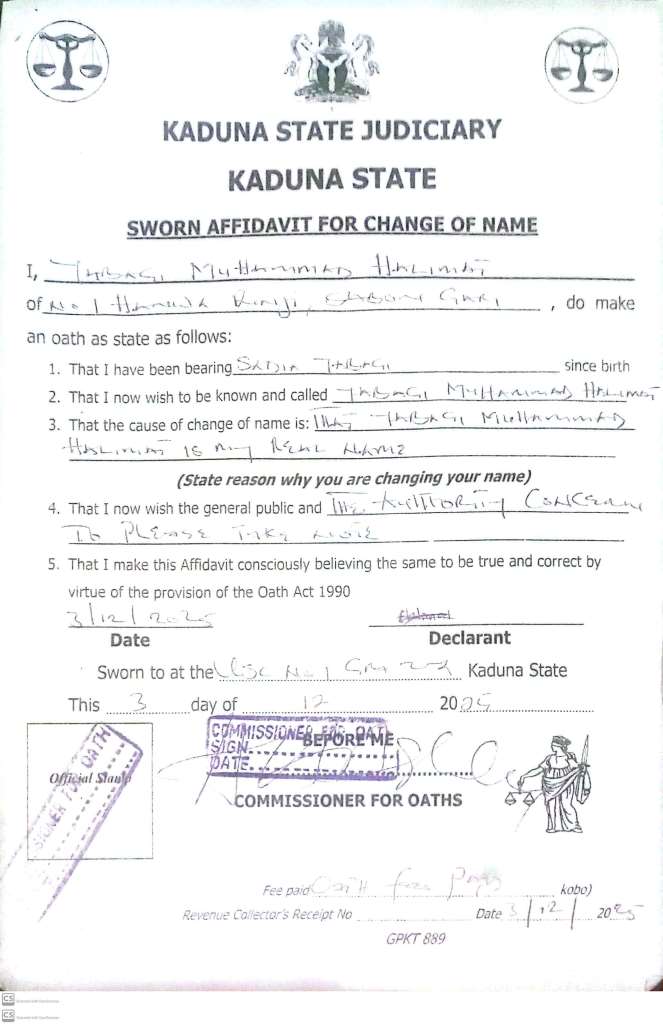 KADUNA STATE JUDICIARY
KADUNA STATE
SWORN AFFIDAVIT FOR CHANGE OF NAME
I, JHBAGI MUHAMMAD HALIMAT
of No 1 HANWA, GARI , do make
an oath as state as follows:
1. That I have been bearing SADIA JHBAGI since birth
2. That I now wish to be known and called JHBAGI MUHAMMAD HALIMAT
3. That the cause of change of name is: THAT JHBAGI MUHAMMAD
HALIMAT IS my REAL NAME
(State reason why you are changing your name)
4. That I now wish the general public and THE AUTHORITY CONCERN
To PLEASE TAKE NOTE
5. That I make this Affidavit consciously believing the same to be true and correct by
virtue of the provision of the Oath Act 1990
3/12/2025
Date
Declarant
Sworn to at the No 1 Kaduna State
This 3 day of 12 2025
COMMISSIONER FOR OATH
SIGN
DATE
BEFORE ME
Official Stamp
SIONER FOR OATH
COMMISSIONER FOR OATHS
Fee paid Oath fees kobo)
Revenue Collector's Receipt No Date 3/12/2025
GPKT 889
CS
CS